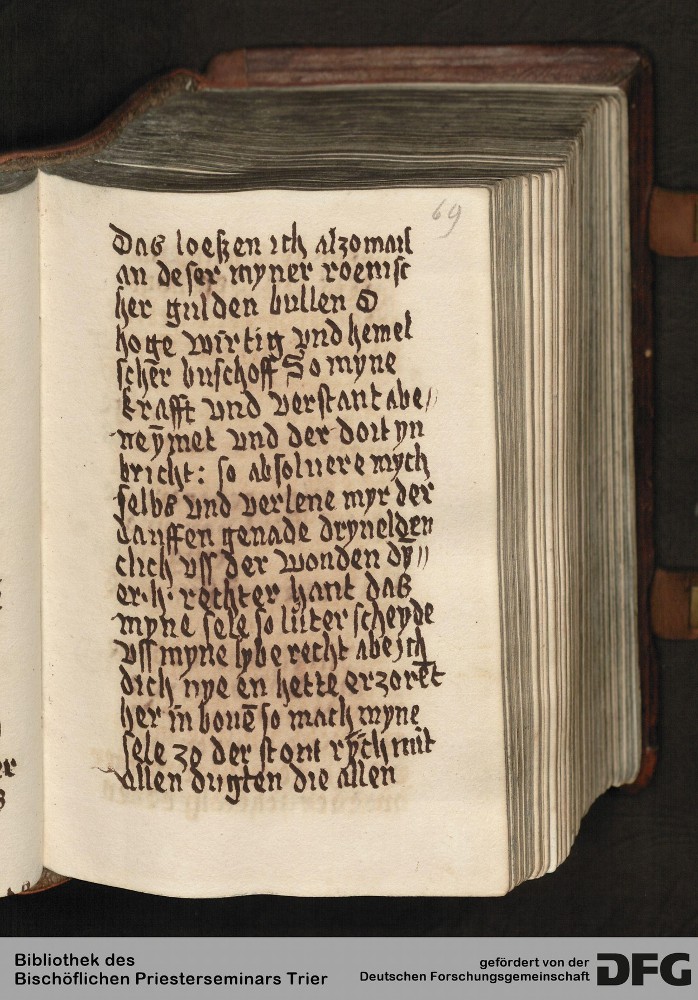 69
Das loeszen ich alzomail
an deser myner roemisc
her gulden bullen O
hoge wirtig vnd hemel
scher buschoff So myne
krafft vnd verstant abe//
neỹmet vnd der doit yn
bricht: so absoluere mych
selbs vnd verlene myr der
dauffen genade drynelden
clich vss der wonden dỹ//
er·h· rechter hant das
myne sele so luter scheyde
vss myne lybe recht abe ich
dich nye en hette erzoret
her in bouē so mach myne
sele zo der stont rych mit
allen dugten die allen
Bibliothek des
Bischöflichen Priesterseminars Trier
gefördert von der
Deutschen Forschungsgemeinschaft
DFG